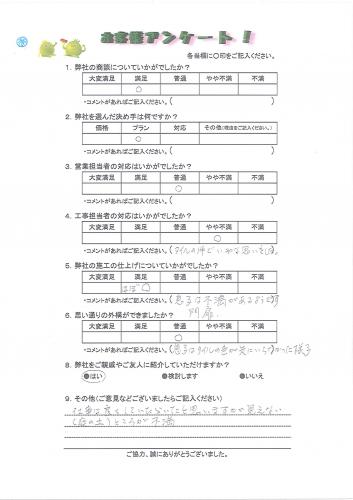 お客様アンケート！
各当欄に〇印をご記入ください。
1. 弊社の商談についていかがでしたか？
大変満足 満足 普通 やや不満 不満
○
・コメントがあればご記入ください。( )
2. 弊社を選んだ決め手は何ですか？
価格 プラン 対応 その他(理由をご記入ください。)
○
・コメントがあればご記入ください。( )
3. 営業担当者の対応はいかがでしたか？
大変満足 満足 普通 やや不満 不満
○
・コメントがあればご記入ください。( )
4. 工事担当者の対応はいかがでしたか？
大変満足 満足 普通 やや不満 不満
○
・コメントがあればご記入ください。(タイルの件でいやな思いをした。)
5. 弊社の施工の仕上げについていかがでしたか？
大変満足 満足 普通 やや不満 不満
ほぼ○
・コメントがあればご記入ください。(息子は不満があるように
門扉。
6. 思い通りの外構ができましたか？
大変満足 満足 普通 やや不満 不満
○
・コメントがあればご記入ください。(息子はタイルの色が気にいらなかった様子
8. 弊社をご親戚やご友人に紹介していただけますか？
●はい ●検討します ●いいえ
9. その他(ご意見などございましたらご記入ください)
仕事は良くしていただいたと思いますが見えない
ところが不満
ご協力、誠にありがとうございました。